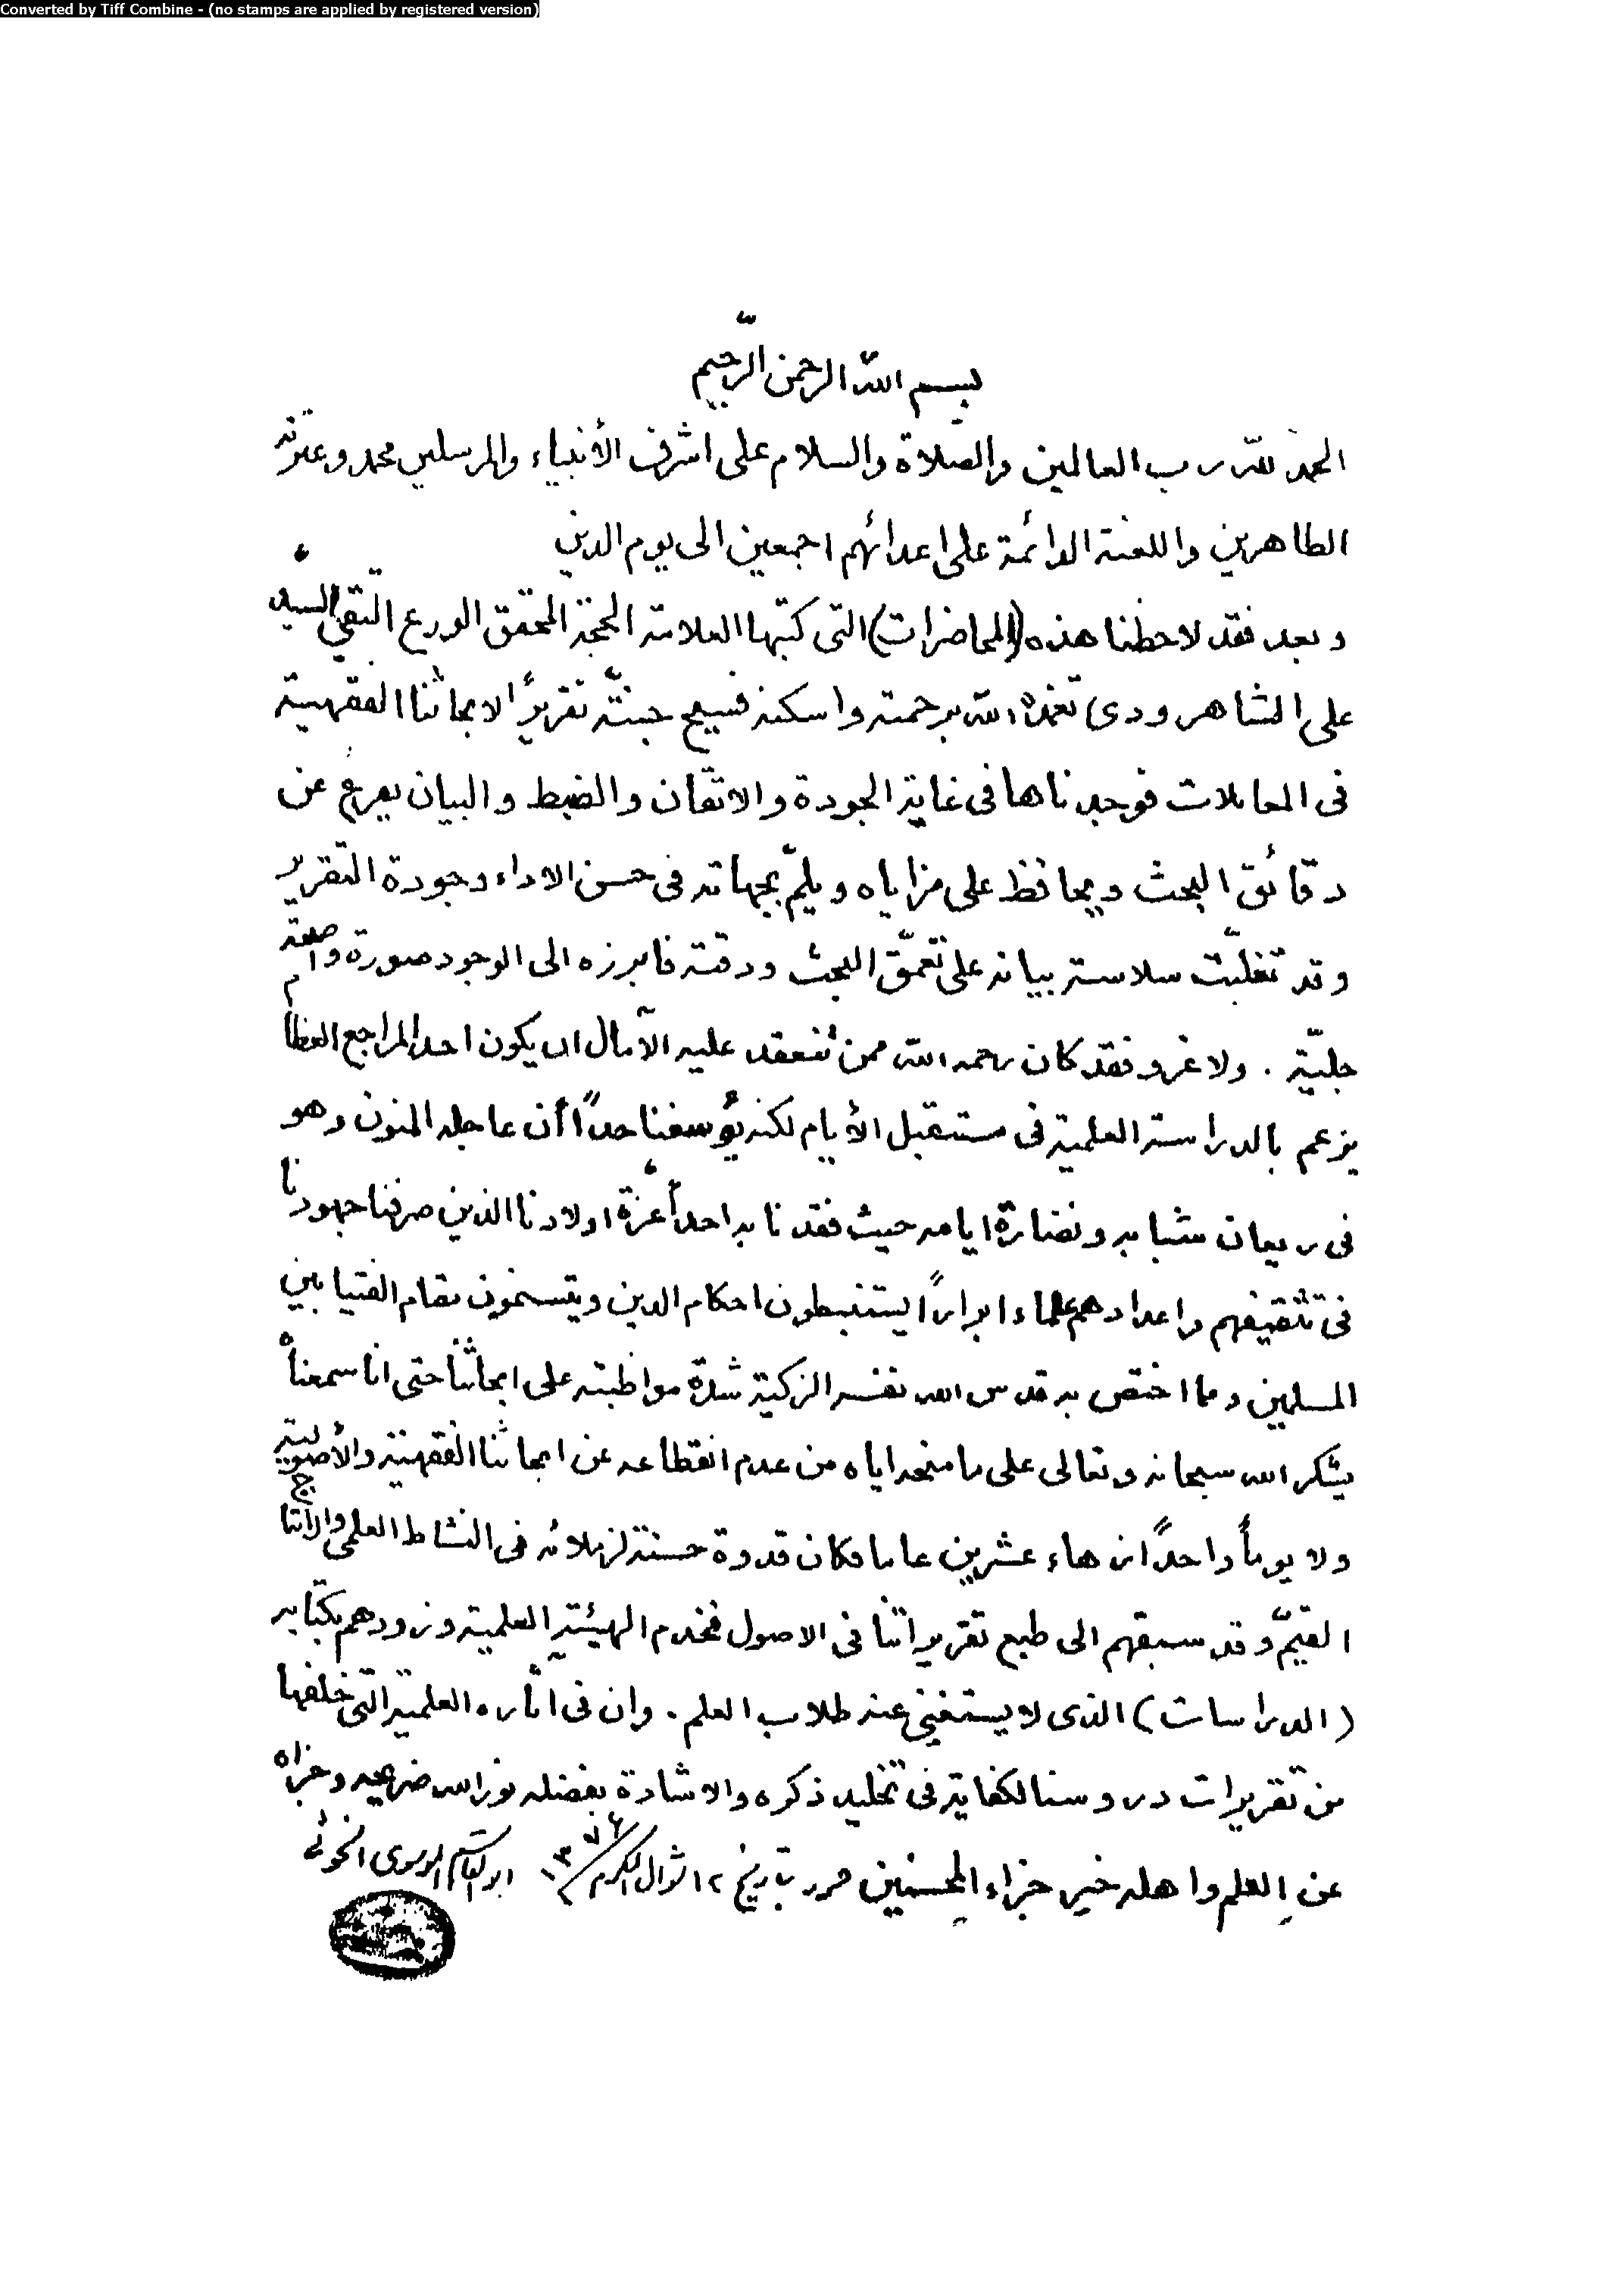 Converted by Tiff Combine - (no stamps are applied by registered version)
بسم الله الرحمن الرّحيم
الحمد لله رب العالمين والصلاة والسلام على اشرف الأنبياء والمرسلين محمد وعترته
الطاهرين واللعنة الدائمة على اعدائهم اجمعين الى يوم الدين
وبعد فقد لاحظنا هذه (المحاضرات) التى كتبها العلامة الحجة المحقق الورع التقي السيد
على الشاهرودى تغمده الله برحمته واسكنه فسيح جنته تقريرًا لابحاثنا الفقهية
فى المعاملات فوجدناها فى غاية الجودة والاتقان والضبط والبيان يعرب عن
دقائق البحث ويحافظ على مزاياه ويلمّ بجهاته فى حسن الاداء وجودة التقرير
وقد تغلّبت سلاسة بيانه على تعمّق البحث ودقته فابرزه الى الوجود صورة واضحة
جليّة . ولا غرو فقد كان رحمه الله ممن تنعقد عليه الآمال ان يكون احد المراجع العظام
يزعم بالدراسة العلمية فى مستقبل الأيام لكنه يؤسفنا جدًا أن عاجله المنون وهو
فى ريعان شبابه ونضارة ايامه حيث فقدنا به احد أعزة اولادنا الذين صرفنا جهودنا
فى تثقيفهم واعدادهم علماء ابرارًا يستنبطون احكام الدين ويتسنمون مقام الفتيا بين
المسلمين ومما اختص به قدس الله نفسه الزكية شدة مواظبته على ابحاثنا حتى انا سمعناه
يشكر الله سبحانه وتعالى على ما منحه اياه من عدم انقطاعه عن ابحاثنا الفقهية والأصولية
ولا يومأ واحدًا زهاء عشرين عاما فكان قدوة حسنة لزملائه فى النشاط العلمى والانتاج
القيّم وقد سبقهم الى طبع تقريراتنا فى الاصول فخدم الهيئة العلمية وزودهم بكتابه
(الدراسات) الذى لا يستغنى عنه طلاب العلم . وان فى اثاره العلمية التى خلفها
من تقريرات دروسنا لكفاية فى تخليد ذكره والاشادة بفضله نور الله ضريحه وجزاه
عن العلم واهله خير جزاء المحسنين حرر بتاريخ ١٢ شوال المكرم ١٣٧٦ ابو القاسم الموسوى الخوئى